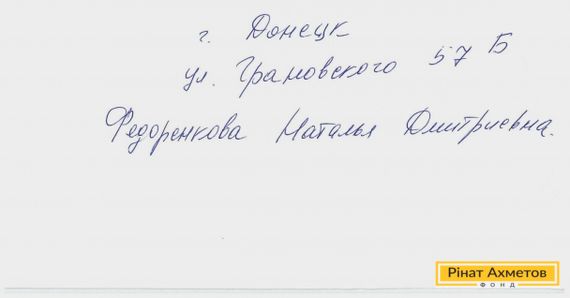 г. Донецк
ул. Грановского 57 Б
Федоренкова Наталья Дмитриевна.
Рінат Ахметов
ФОНД